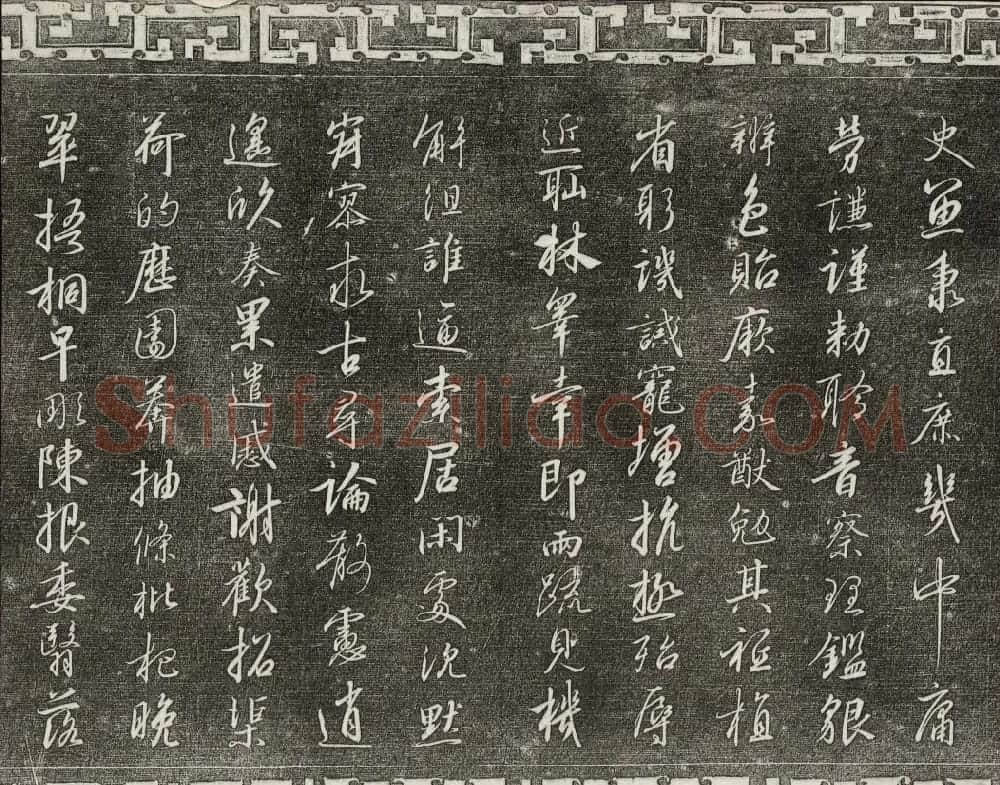 史魚秉直庶幾中庸
勞謙謹勅聆音察理鑑貌
辨色貽厥嘉猷勉其祗植
省躬譏誡寵增抗極殆辱
近耻林皋幸即兩疏見機
解組誰逼索居閑處沈默
寂寥求古尋論散慮逍
遥欣奏累遣慼謝歡招渠
荷的歷園莽抽條枇杷晚
翠梧桐早彫陳根委翳落
Shufaziliao.COM